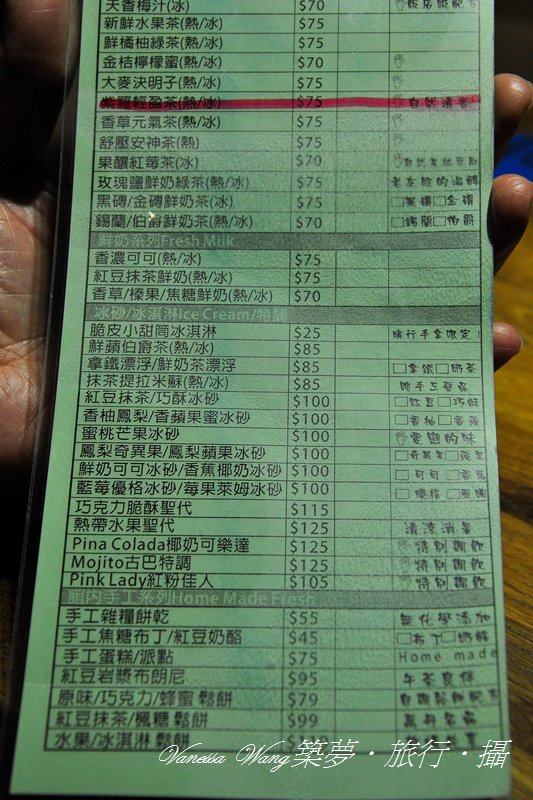 天香梅汁(冰) $70
新鮮水果茶(熱/冰) $75
鮮橘柚綠茶(熱/冰) $75
金桔檸檬蜜(熱/冰) $70
大麥決明子(熱/冰) $75
紫羅輕盈茶(熱/冰) $75 自然清香
香草元氣茶(熱/冰) $75
舒壓安神茶(熱) $75
果釀紅莓茶(熱/冰) $70
玫瑰鹽鮮奶綠茶(熱/冰) $75
黑磚/金磚鮮奶茶(熱/冰) $75 □黑磚□金磚
錫蘭/伯爵鮮奶茶(熱/冰) $70 □錫蘭□伯爵
鮮奶系列Fresh Milk
香濃可可(熱/冰) $75
紅豆抹茶鮮奶(熱/冰) $75
香草/榛果/焦糖鮮奶(熱/冰) $70
冰砂/冰淇淋Ice Cream/特調
脆皮小甜筒冰淇淋 $25 隨行手拿限定!
鮮蘋伯爵茶(熱/冰) $85
拿鐵漂浮/鮮奶茶漂浮 $85 □拿鐵□奶茶
抹茶提拉米蘇(熱/冰) $85
紅豆抹茶/巧酥冰砂 $100 □紅豆□巧酥
香柚鳳梨/香蘋果蜜冰砂 $100 □香柚□香蘋
蜜桃芒果冰砂 $100 戀戀的味
鳳梨奇異果/鳳梨蘋果冰砂 $100 □奇異果□蘋果
鮮奶可可冰砂/香蕉椰奶冰砂 $100 □可可□香蕉
藍莓優格冰砂/莓果萊姆冰砂 $100 □優格□
巧克力脆酥聖代 $115
熱帶水果聖代 $125 清涼消暑
Pina Colada椰奶可樂達 $125 特別調飲
Mojito古巴特調 $125 特別調飲
Pink Lady紅粉佳人 $105 特別調飲
館內手工系列Home Made Fresh
手工雜糧餅乾 $55 無化學添加
手工焦糖布丁/紅豆奶酪 $45 □布丁□奶酪
手工蛋糕/派點 $75 Home made
紅豆岩漿布朗尼 $95 午茶良伴
原味/巧克力/蜂蜜 鬆餅 $79
紅豆抹茶/楓糖 鬆餅 $99
水果/冰淇淋 鬆餅
Vanessa Wang 築夢‧旅行‧攝